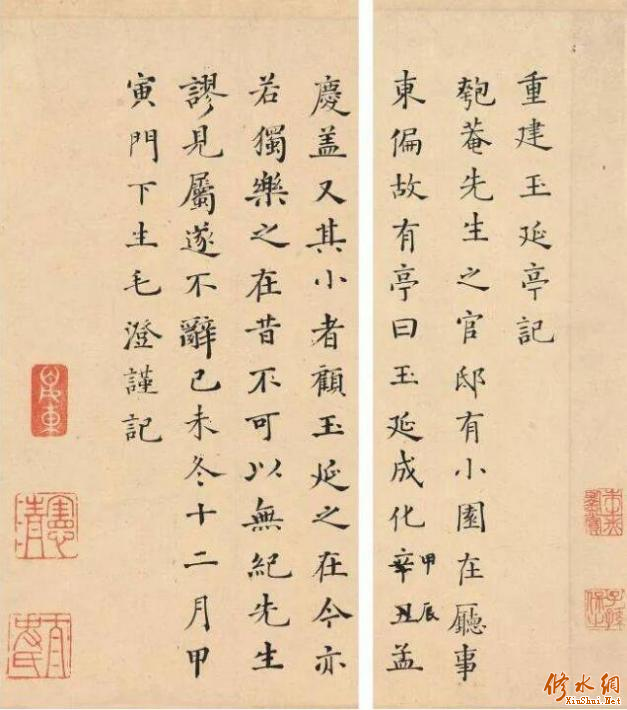 重建玉延亭記
匏菴先生之官邸有小園在廳事
東偏故有亭曰玉延成化辛丑孟
甲辰
慶盖又其小者顧玉延之在今亦
若獨樂之在昔不可以無紀先生
謬見屬遂不辭己未冬十二月甲
寅門下生毛澄謹記
修水網
XiuShui.Net